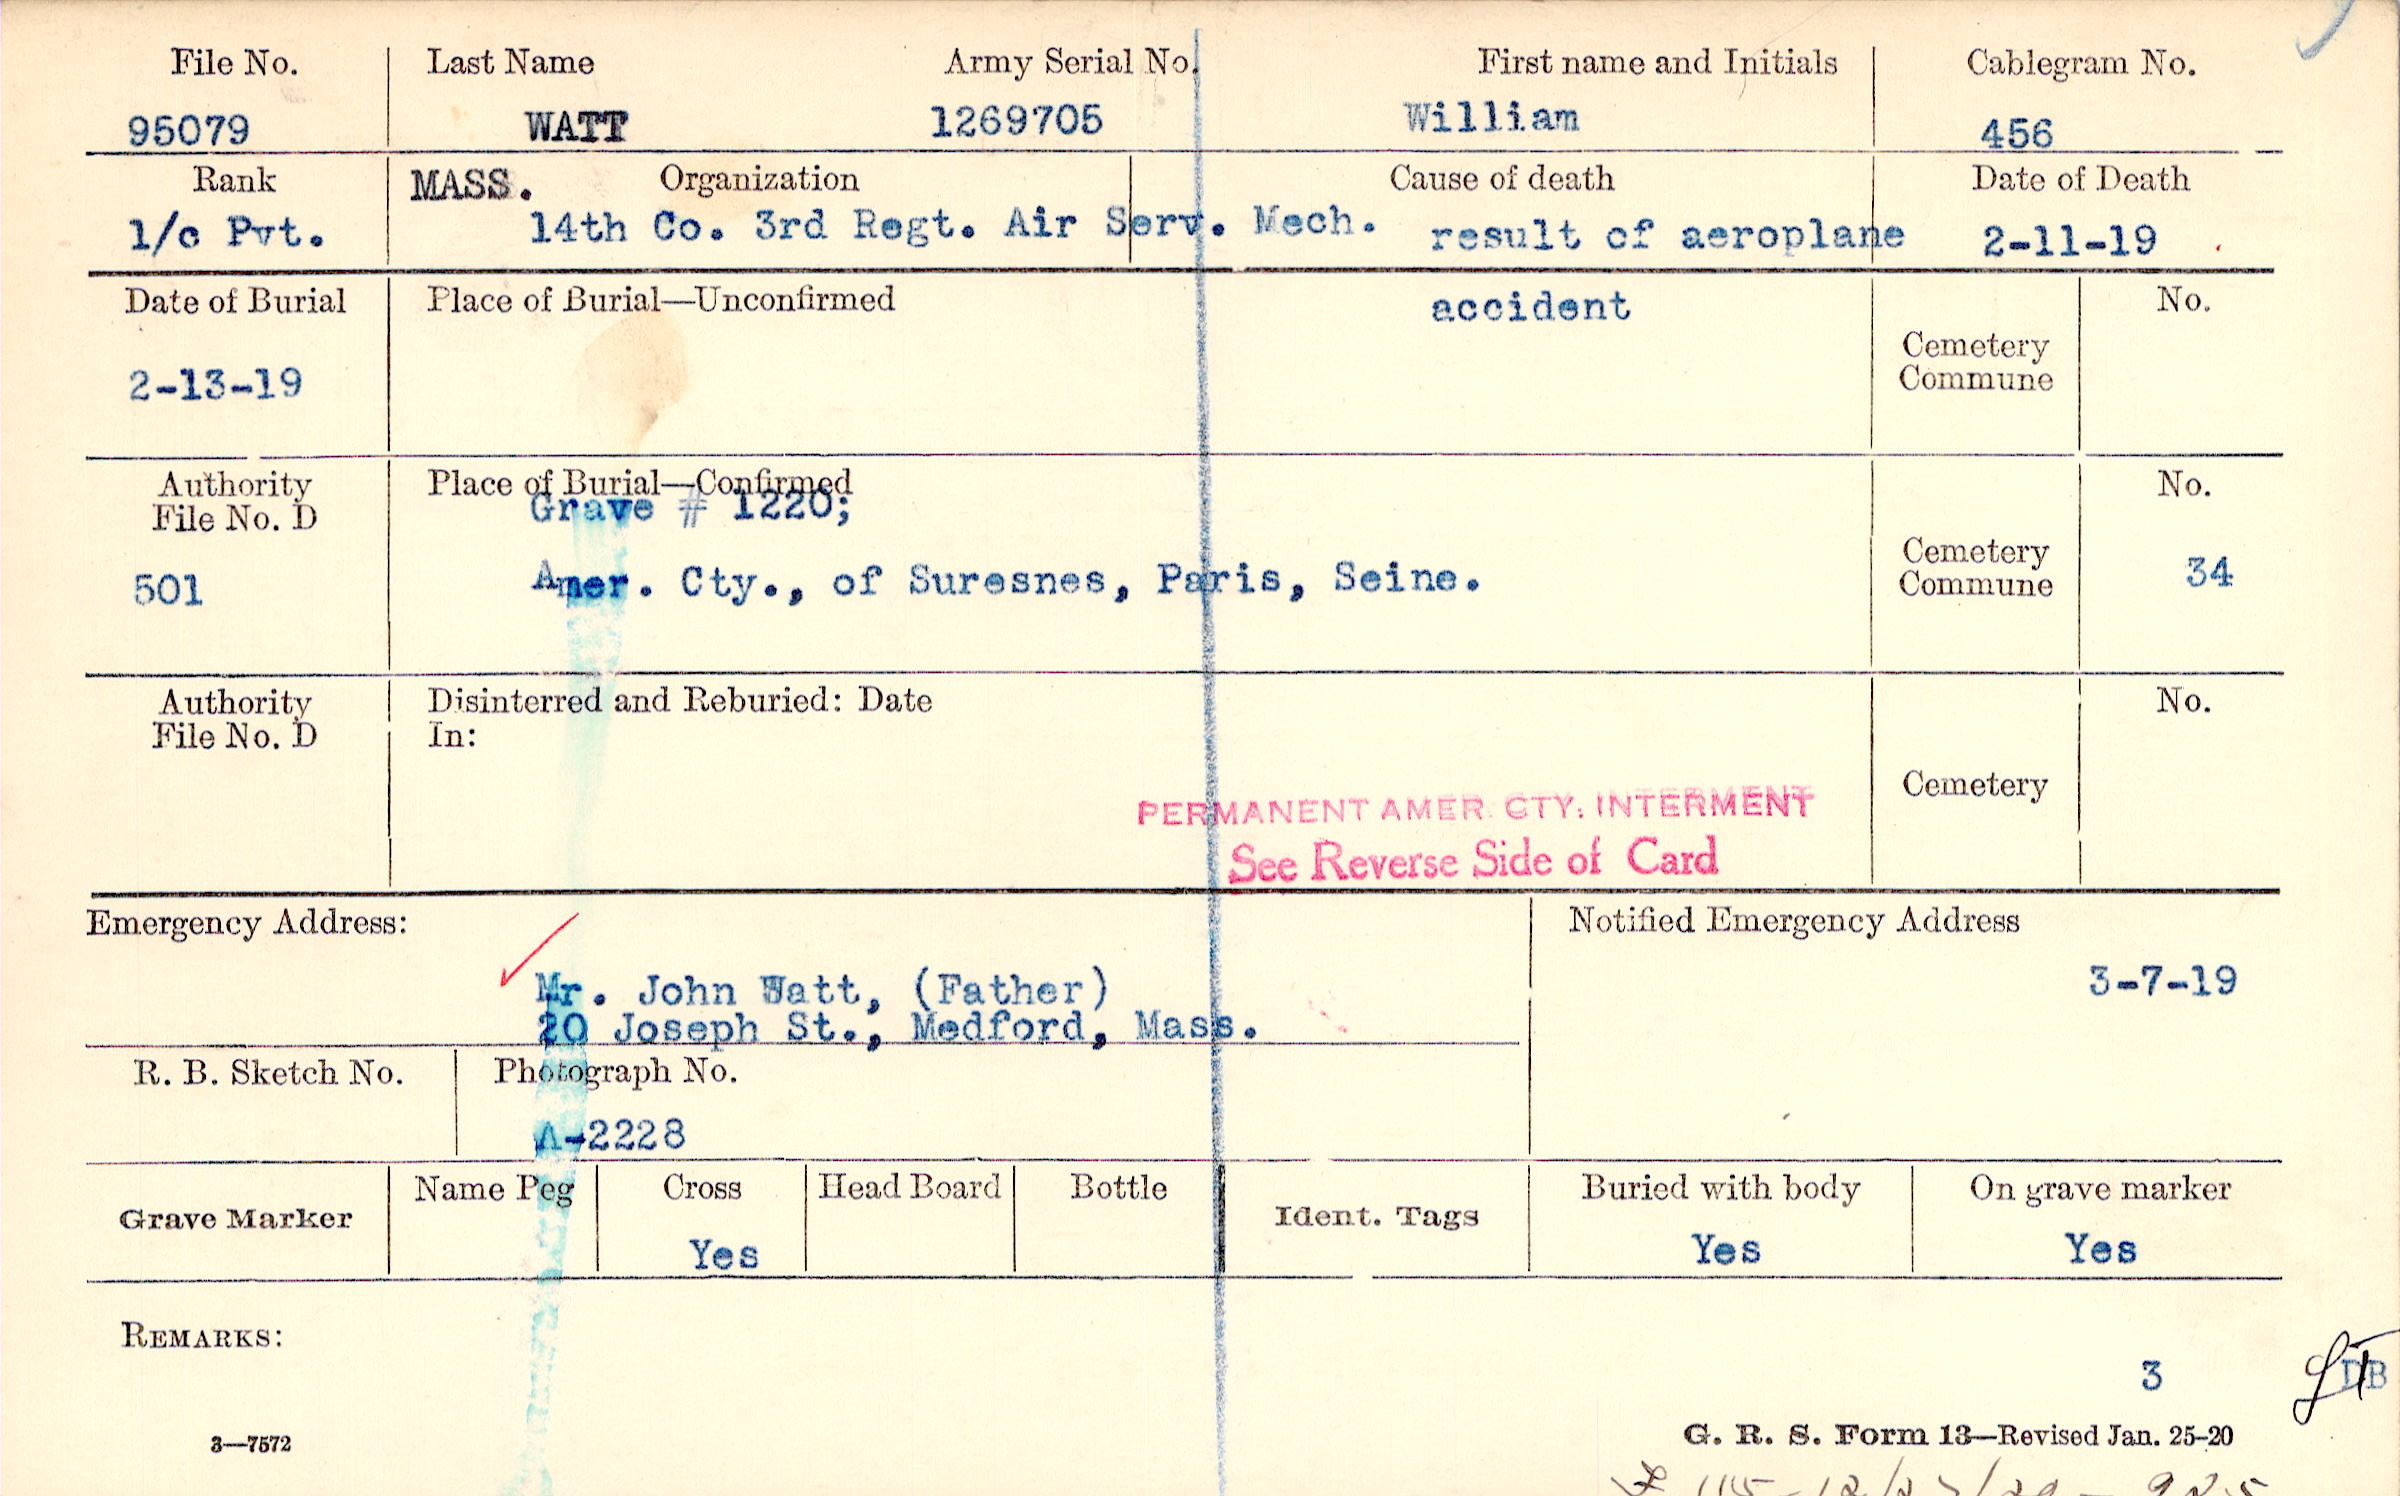 File No. Last Name Army Serial No. First name and Initials Cablegram No.
95079 WATT 1269705 William 456
Rank MASS. Organization Cause of death Date of Death
1/c Pvt. 14th Co. 3rd Regt. Air Serv. Mech. result of aeroplane 2-11-19
Date of Burial Place of Burial—Unconfirmed accident No.
Cemetery
Commune
2-13-19
Authority Place of Burial—Confirmed No.
File No. D Grave # 1220;
Cemetery
Commune
501 Amer. Cty., of Suresnes, Paris, Seine. 34
Authority Disinterred and Reburied: Date No.
File No. D In:
Cemetery
PERMANENT AMER. CTY. INTERMENT
See Reverse Side of Card
Emergency Address: Notified Emergency Address
Mr. John Watt, (Father) 3-7-19
20 Joseph St., Medford, Mass.
R. B. Sketch No. Photograph No.
A-2228
Grave Marker Name Peg Cross Head Board Bottle Ident. Tags Buried with body On grave marker
Yes Yes Yes
REMARKS:
3 DB
3—7572 G. R. S. Form 13—Revised Jan. 25-20